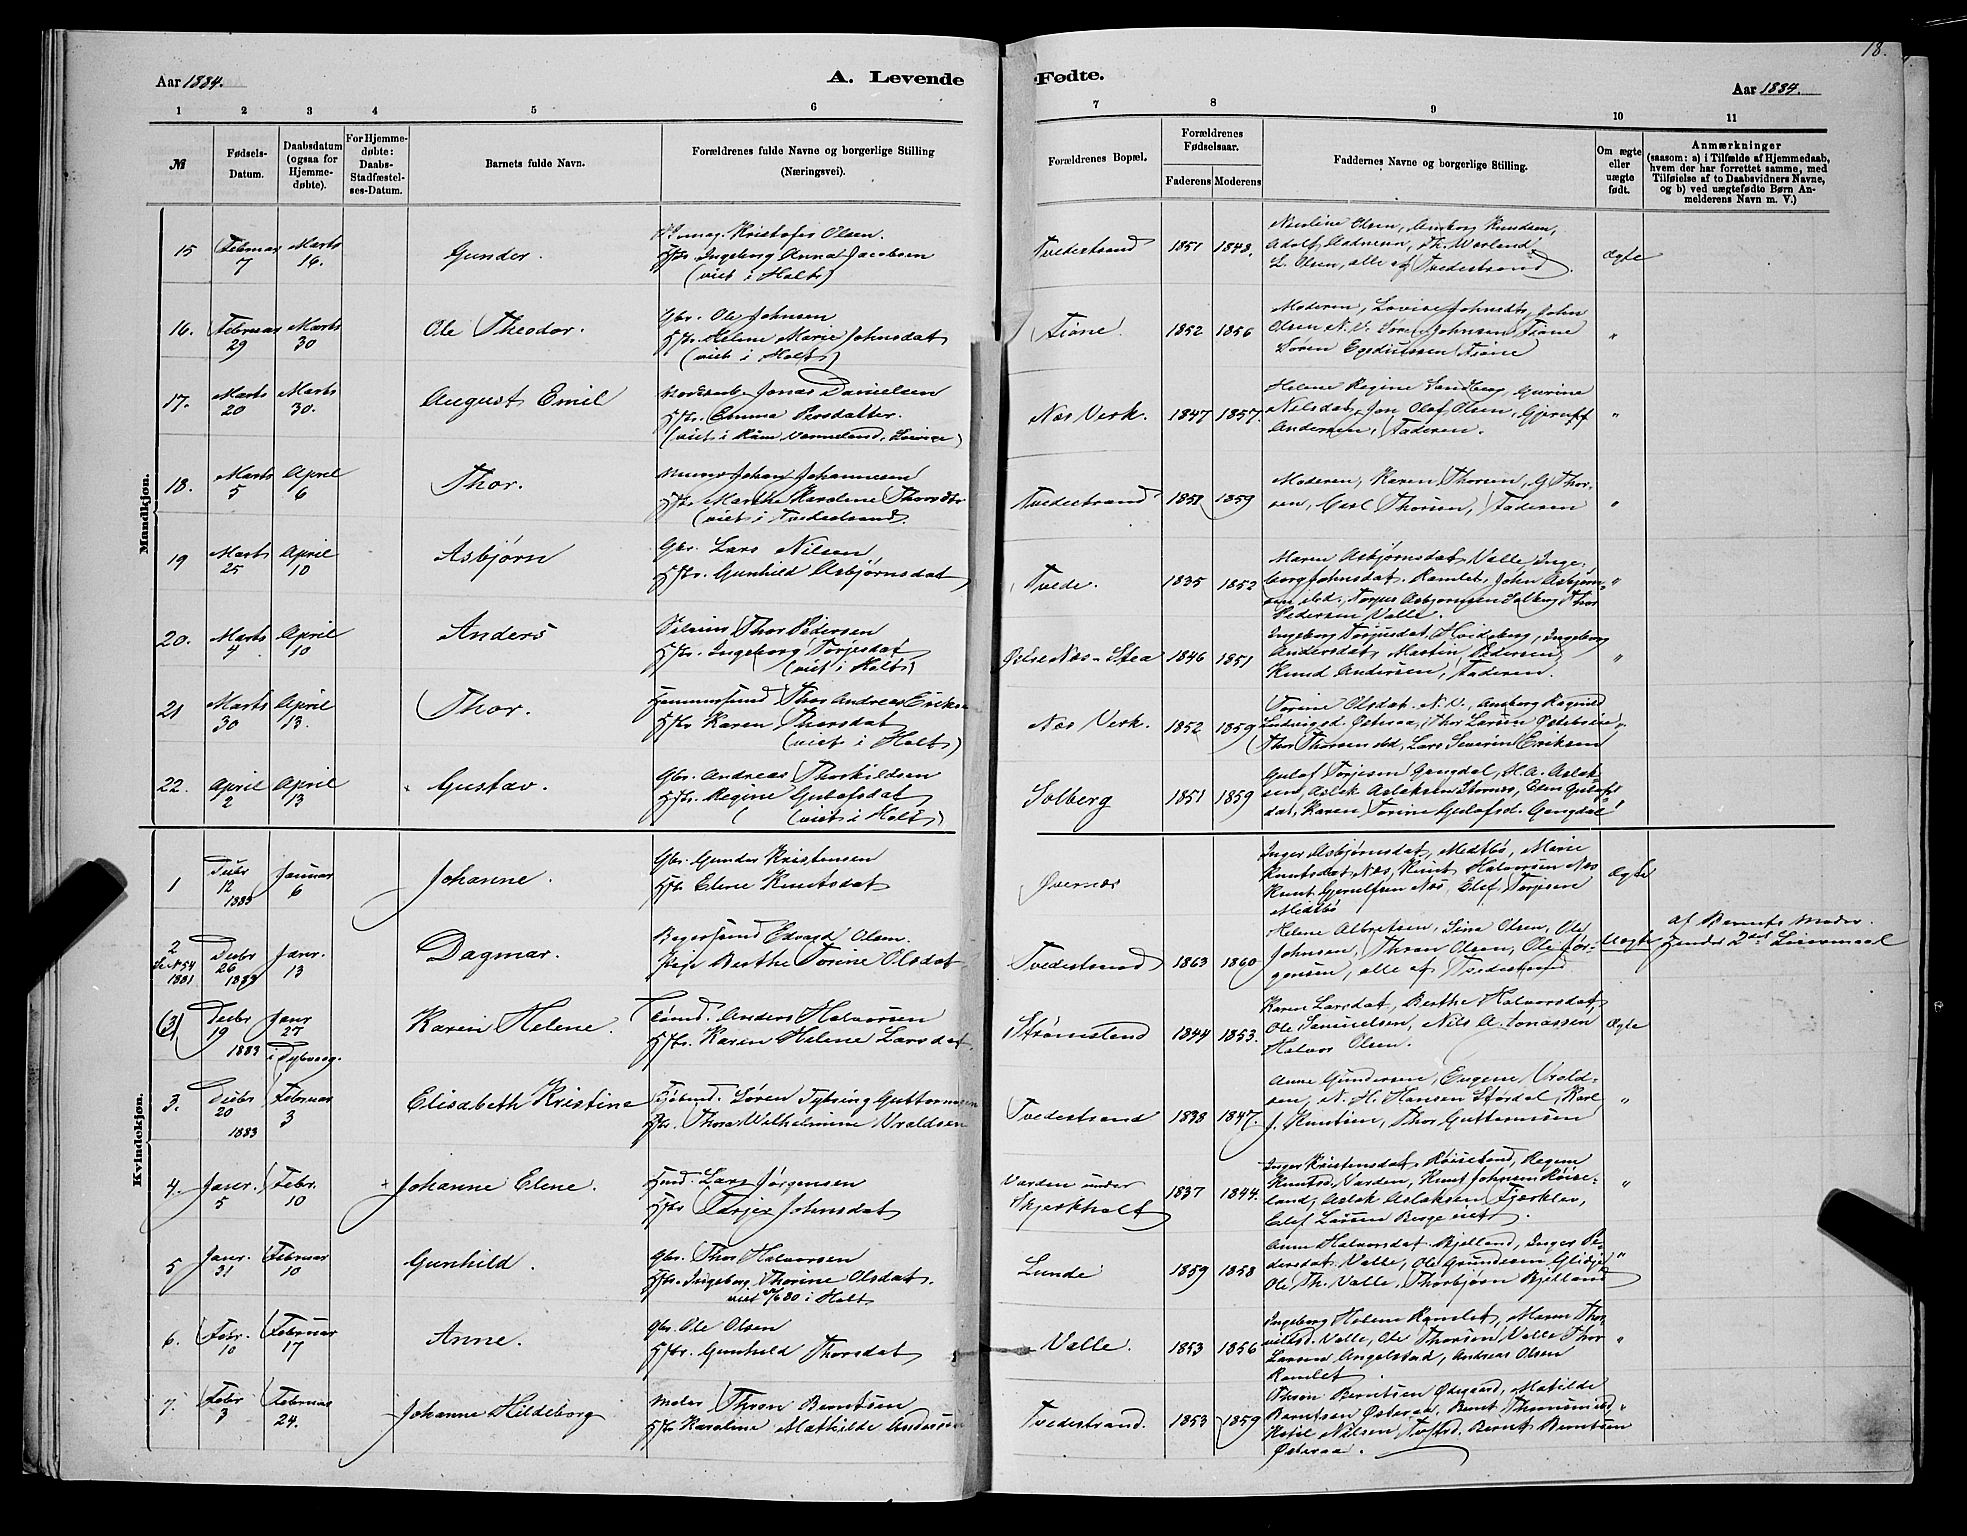 18.
Aar 1884. A. Levende Fødte. Aar 1884.
1 2 3 4 5 6 7 8 9 10 11
№
Fødsels-
Datum.
Daabsdatum
(ogsaa for
Hjemme-
døbte).
For Hjemme-
døbte:
Daabs-
Stadfæstel-
ses-Datum.
Barnets fulde Navn.
Forældrenes fulde Navne og borgerlige Stilling
(Næringsvei).
Forældrenes Bopæl.
Forældrenes
Fødselsaar.
Faderens Moderens
Faddernes Navne og borgerlige Stilling.
Om ægte
eller
uægte
født.
Anmærkninger
(saasom: a) i Tilfælde af Hjemmedaab,
hvem der har forrettet samme, med
Tilføielse af to Daabsvidners Navne,
og b) ved uægtefødte Børn An-
melderens Navn m. V.)
Mandkjøn.
15 Februar 7 Marts 16. Gunder. Kristofer Olsen.
Ingeborg Anna Jacobsen
(viet i Holt)
Tvedestrand 1851 1848.
Olsen, Amborg Knudsen,
L. Olsen, alle af Tvedestrand. Ægte
16. Februar 29 Marts 30 Ole Theodor. Gbr. Ole Johnsen
Helene Marie Johnsdat
(viet i Holt)
Fiane. 1852 1856
Moderen, Lovise Johnsdt, John
Olsen N.V. Søren Johnsen Fiane
Søren Fiane "
17. Marts 20 Marts 30. August Emil Jonas Danielsen
Hstr. Emma Persdatter.
Næs Verk. 1847 1857.
Helene Regine Sandberg, Gurine
Nilsdat, Olaf Olsen,
Andersen, Faderen. "
18. Marts 5 April 6 Thor. Murer Johan Johannesen
Marthe Karoline Thorsdtr
(viet i Tvedestrand.
Tvedestrand 1859
Moderen, Karen Thorsen, G. Thor-
sen, Carl Thorsen, Faderen "
19 Marts 25 April 10 Asbjørn Gbr. Lars Nilsen
Hstr. Gunhild Asbjørnsdat
Tvede. 1835 1852
Maren Asbjørnsdat Valle, Inge-
borg Johnsdat. Ramlet, John Asbjørn-
sen ibd., Torjus Asbjørnsen Solberg Thor
Pedersen Valle. "
20. Marts 4 April 10 Anders Thor Pedersen
Hstr. Ingeborg Torjesdat
(viet i Holt)
1846 1851
Ingeborg Torjusdat Ingeborg
Andersdat, Martin Pedersen,
Knud Andersen, Faderen. "
21 Marts 30 April 13. Thor. Thor Andreas Eriksen
Hstr Karen Thorsdat
(viet i Holt)
Næs Verk. 1852 1859
Torine Olsdat N.V., Amborg Ragnild
Ludvigsd. Østeraa, Thor Larsen
Thor Thorsen ibd, Lars Severin Eriksen "
22. April 2 April 13 Gustav. Gbr. Andreas Thorkildsen
Hstr. Regine Gulofsdat
(viet i Holt)
Solberg 1851 1859
Gulof Torjesen Gangdal, H.A. Aslak-
sen, Aslak Aslaksen Elen Gulofs-
dat, Karen Torine Gulofsd. Gangdal "
Kvindekjøn.
1 Decbr 12 1883 Januar 6 Johanne. Gbr. Gunder Kristensen
Hstr Elene Knutsdat
Øvernæs
Inger Asbjørnsdat, Midtbø, Marie
Knutsdat Næs, Knut Halvorsen Næs
Knut Næs, Elef Torjesen
Midtbø Ægte
2 Se № 54 1881 Decbr 26 1883 Janr. 13 Dagmar. Edvard Olsen.
Pige Berthe Torine Olsdat
Tvedestrand 1863 1860
Helene Albretsen, Sina Olsen, Ole
Johnsen, Thron Olsen, Ole Jør-
gensen, alle af Tvedestrand. Uægte
af Barnets Moder
hendes 2det Leiermaal
(3) Decbr 19 1883 Janr 27 i Dybvaag. Karen Helene. Anders Halvorsen
Hstr. Karen Helene Larsdat.
Strømsland 1844 1853.
Karen Larsdat, Berthe Halvorsdat,
Ole Samuelsen, Nils A. Jonassen
Halvor Olsen. Ægte
3. Decbr 20 1883 Februar 3 Elisabeth Kristine Søren Guttormsen
Thora Wilhelmine Vraldsen
Tvedestrand 1838 1847.
Anne Gundersen, Eugene Vrald-
sen, N. H. Hansen Størdal, Karl
J. Knutsen, Thor Guttormsen "
4. Janr. 5 Febr. 10 Johanne Elene. Lars Jørgensen
Hstr Tarjer Johnsdat
Varden under
Skjerkholt 1837 1844.
Inger Kristensdat Røiseland, Regine
Knutsd. Varden, Knut Johnsen Røise-
land, Aslak Aslaksen Fjærklev,
Elef Larsen "
5 Janr. 31 Februar 10 Gunhild. Gbr. Thor Halvorsen
Hstr. Ingeborg Thorine Olsdat.
viet i Holt
Lunde 1859 1858
Anne Halvorsdat Bjelland, Inger Pe-
dersdat Valle, Ole Gundersen
Ole Th. Valle, Thorbjørn Bjelland "
6. Febr. 10 Februar 17 Anne. Gbr. Ole Olsen
Hstr. Gunhild Thorsdat
Valle. 1853 1856
Ingeborg Helene Ramlet, Maren Thor-
Valle, Ole Thorsen Valle Thor
Larsen Angelstad, Andreas Olsen
Ramlet. "
7. Febr 3 Februar 24. Johanne Hildeborg Maler Thron Berntsen
Hstr Karoline Mathilde Andersen
Tvedestrand. 1853 1859
Thron Berntsen Ødegaard, Matilde
Berntsen Østeraa, Bernt
Ketil Nilsen, Bernt Berntsen
Østeraa. "